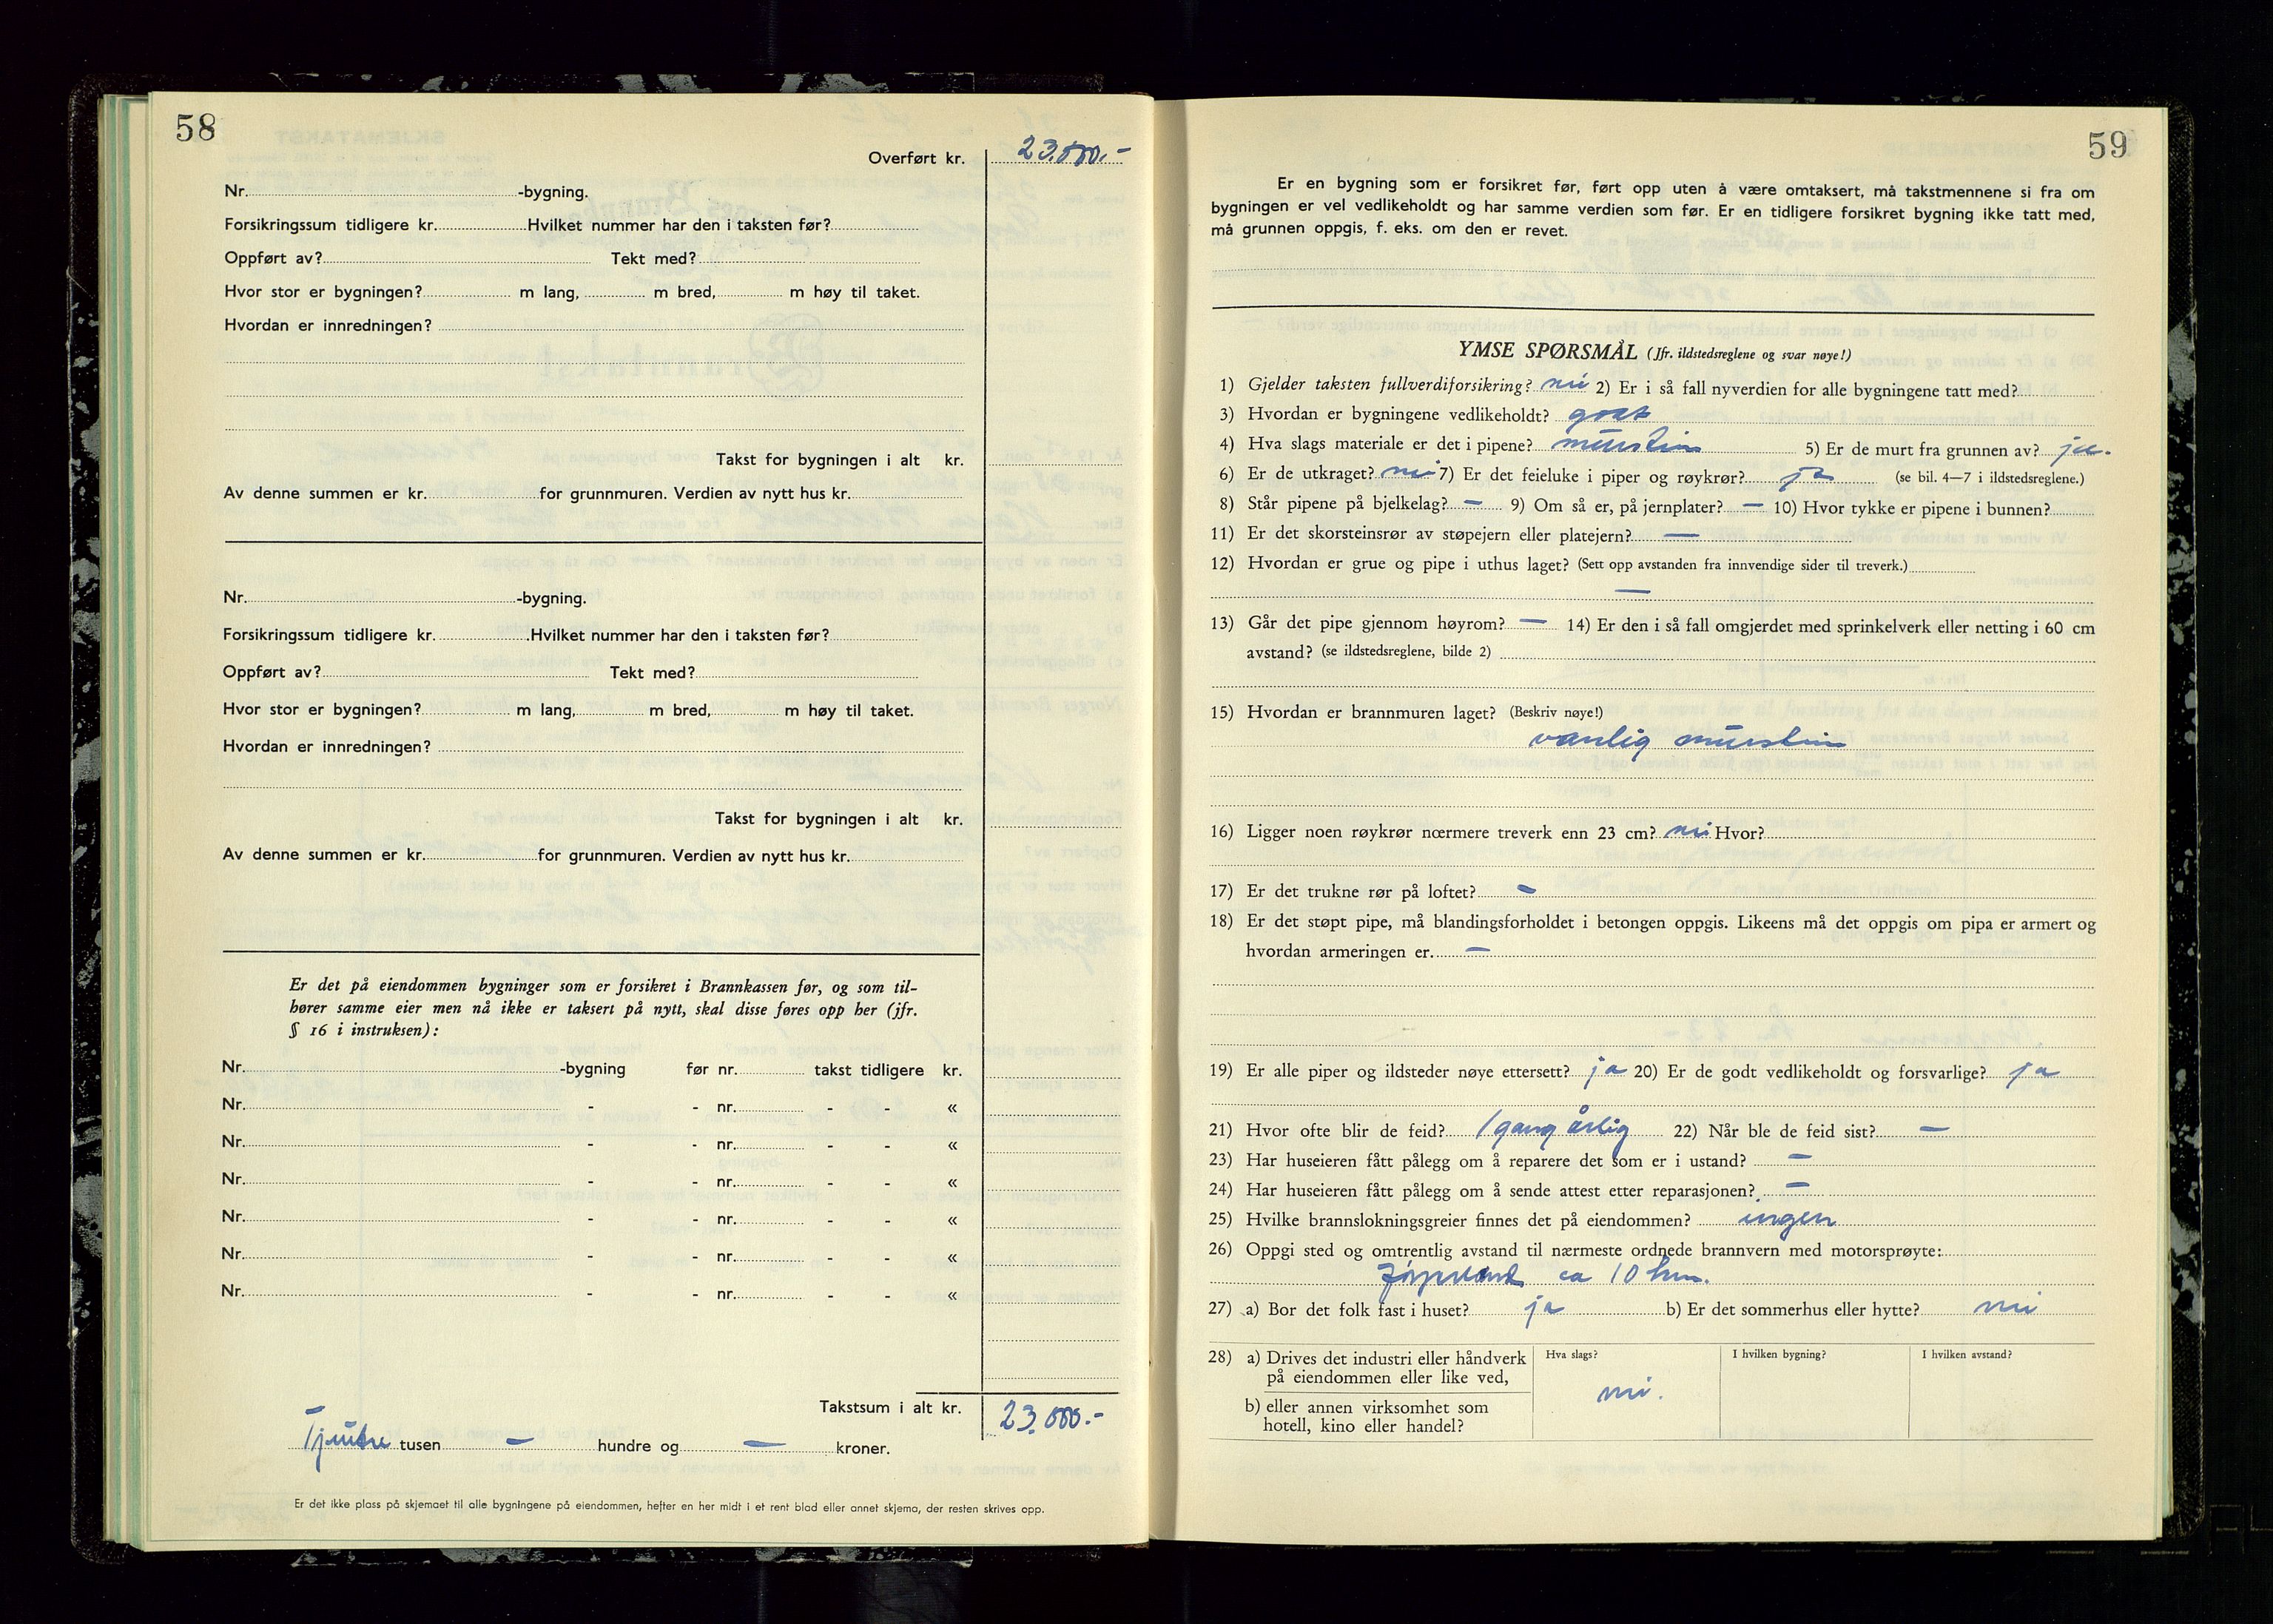 58
Overført kr. 23.000.-
Nr. -bygning.
Forsikringssum tidligere kr. Hvilket nummer har den i taksten før?
Oppført av? Tekt med?
Hvor stor er bygningen? m lang, m bred, m høy til taket.
Hvordan er innredningen?
Takst for bygningen i alt kr.
Av denne summen er kr. for grunnmuren. Verdien av nytt hus kr.
Nr. -bygning.
Forsikringssum tidligere kr. Hvilket nummer har den i taksten før?
Oppført av? Tekt med?
Hvor stor er bygningen? m lang, m bred, m høy til taket.
Hvordan er innredningen?
Takst for bygningen i alt kr.
Av denne summen er kr. for grunnmuren. Verdien av nytt hus kr.
Er det på eiendommen bygninger som er forsikret i Brannkassen før, og som til-
hører samme eier men nå ikke er taksert på nytt, skal disse føres opp her (jfr.
§ 16 i instruksen):
Nr. -bygning før nr. takst tidligere kr.
Nr. - - nr. - - «
Nr. - - nr. - - «
Nr. - - nr. - - «
Nr. - - nr. - - «
Nr. - - nr. - - «
Nr. - - nr. - - «
Takstsum i alt kr. 23.000.-
Tjuetre tusen — hundre og — kroner.
Er det ikke plass på skjemaet til alle bygningene på eiendommen, hefter en her midt i et rent blad eller annet skjema, der resten skrives opp.
59
Er en bygning som er forsikret før, ført opp uten å være omtaksert, må takstmennene si fra om
bygningen er vel vedlikeholdt og har samme verdien som før. Er en tidligere forsikret bygning ikke tatt med,
må grunnen oppgis, f. eks. om den er revet.
YMSE SPØRSMÅL (Jfr. ildstedsreglene og svar nøye!)
1) Gjelder taksten fullverdiforsikring? nei 2) Er i så fall nyverdien for alle bygningene tatt med?
3) Hvordan er bygningene vedlikeholdt? godt
4) Hva slags materiale er det i pipene? murstein 5) Er de murt fra grunnen av? ja.
6) Er de utkraget? nei 7) Er det feieluke i piper og røykrør? ja (se bil. 4—7 i ildstedsreglene.)
8) Står pipene på bjelkelag? — 9) Om så er, på jernplater? — 10) Hvor tykke er pipene i bunnen?
11) Er det skorsteinsrør av støpejern eller platejern? —
12) Hvordan er grue og pipe i uthus laget? (Sett opp avstanden fra innvendige sider til treverk.)
—
13) Går det pipe gjennom høyrom? — 14) Er den i så fall omgjerdet med sprinkelverk eller netting i 60 cm
avstand? (se ildstedsreglene, bilde 2)
15) Hvordan er brannmuren laget? (Beskriv nøye!)
vanlig murstein
16) Ligger noen røykrør nærmere treverk enn 23 cm? nei Hvor?
17) Er det trukne rør på loftet? —
18) Er det støpt pipe, må blandingsforholdet i betongen oppgis. Likeens må det oppgis om pipa er armert og
hvordan armeringen er. —
19) Er alle piper og ildsteder nøye ettersett? ja 20) Er de godt vedlikeholdt og forsvarlige? ja
21) Hvor ofte blir de feid? 1 gang årlig 22) Når ble de feid sist? —
23) Har huseieren fått pålegg om å reparere det som er i ustand? —
24) Har huseieren fått pålegg om å sende attest etter reparasjonen? —
25) Hvilke brannslokningsgreier finnes det på eiendommen? ingen
26) Oppgi sted og omtrentlig avstand til nærmeste ordnede brannvern med motorsprøyte:
Jørpeland ca 10 km.
27) a) Bor det folk fast i huset? ja b) Er det sommerhus eller hytte? nei
28) a) Drives det industri eller håndverk
på eiendommen eller like ved,
b) eller annen virksomhet som
hotell, kino eller handel?
Hva slags?
nei.
I hvilken bygning?
I hvilken avstand?